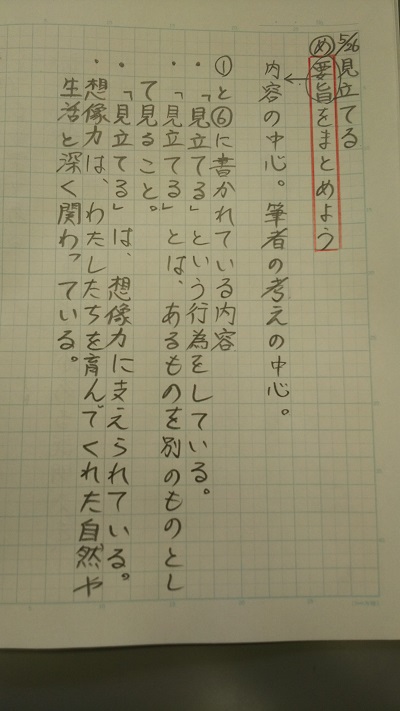 5/26 見立てる
め 要旨をまとめよう
内容の中心。筆者の考えの中心。
①と⑥に書かれている内容
・「見立てる」という行為をしている。
・「見立てる」とは、あるものを別のものとし
て見ること。
・「見立てる」は、想像力に支えられている。
・想像力は、わたしたちを育んでくれた自然や
生活と深く関わっている。